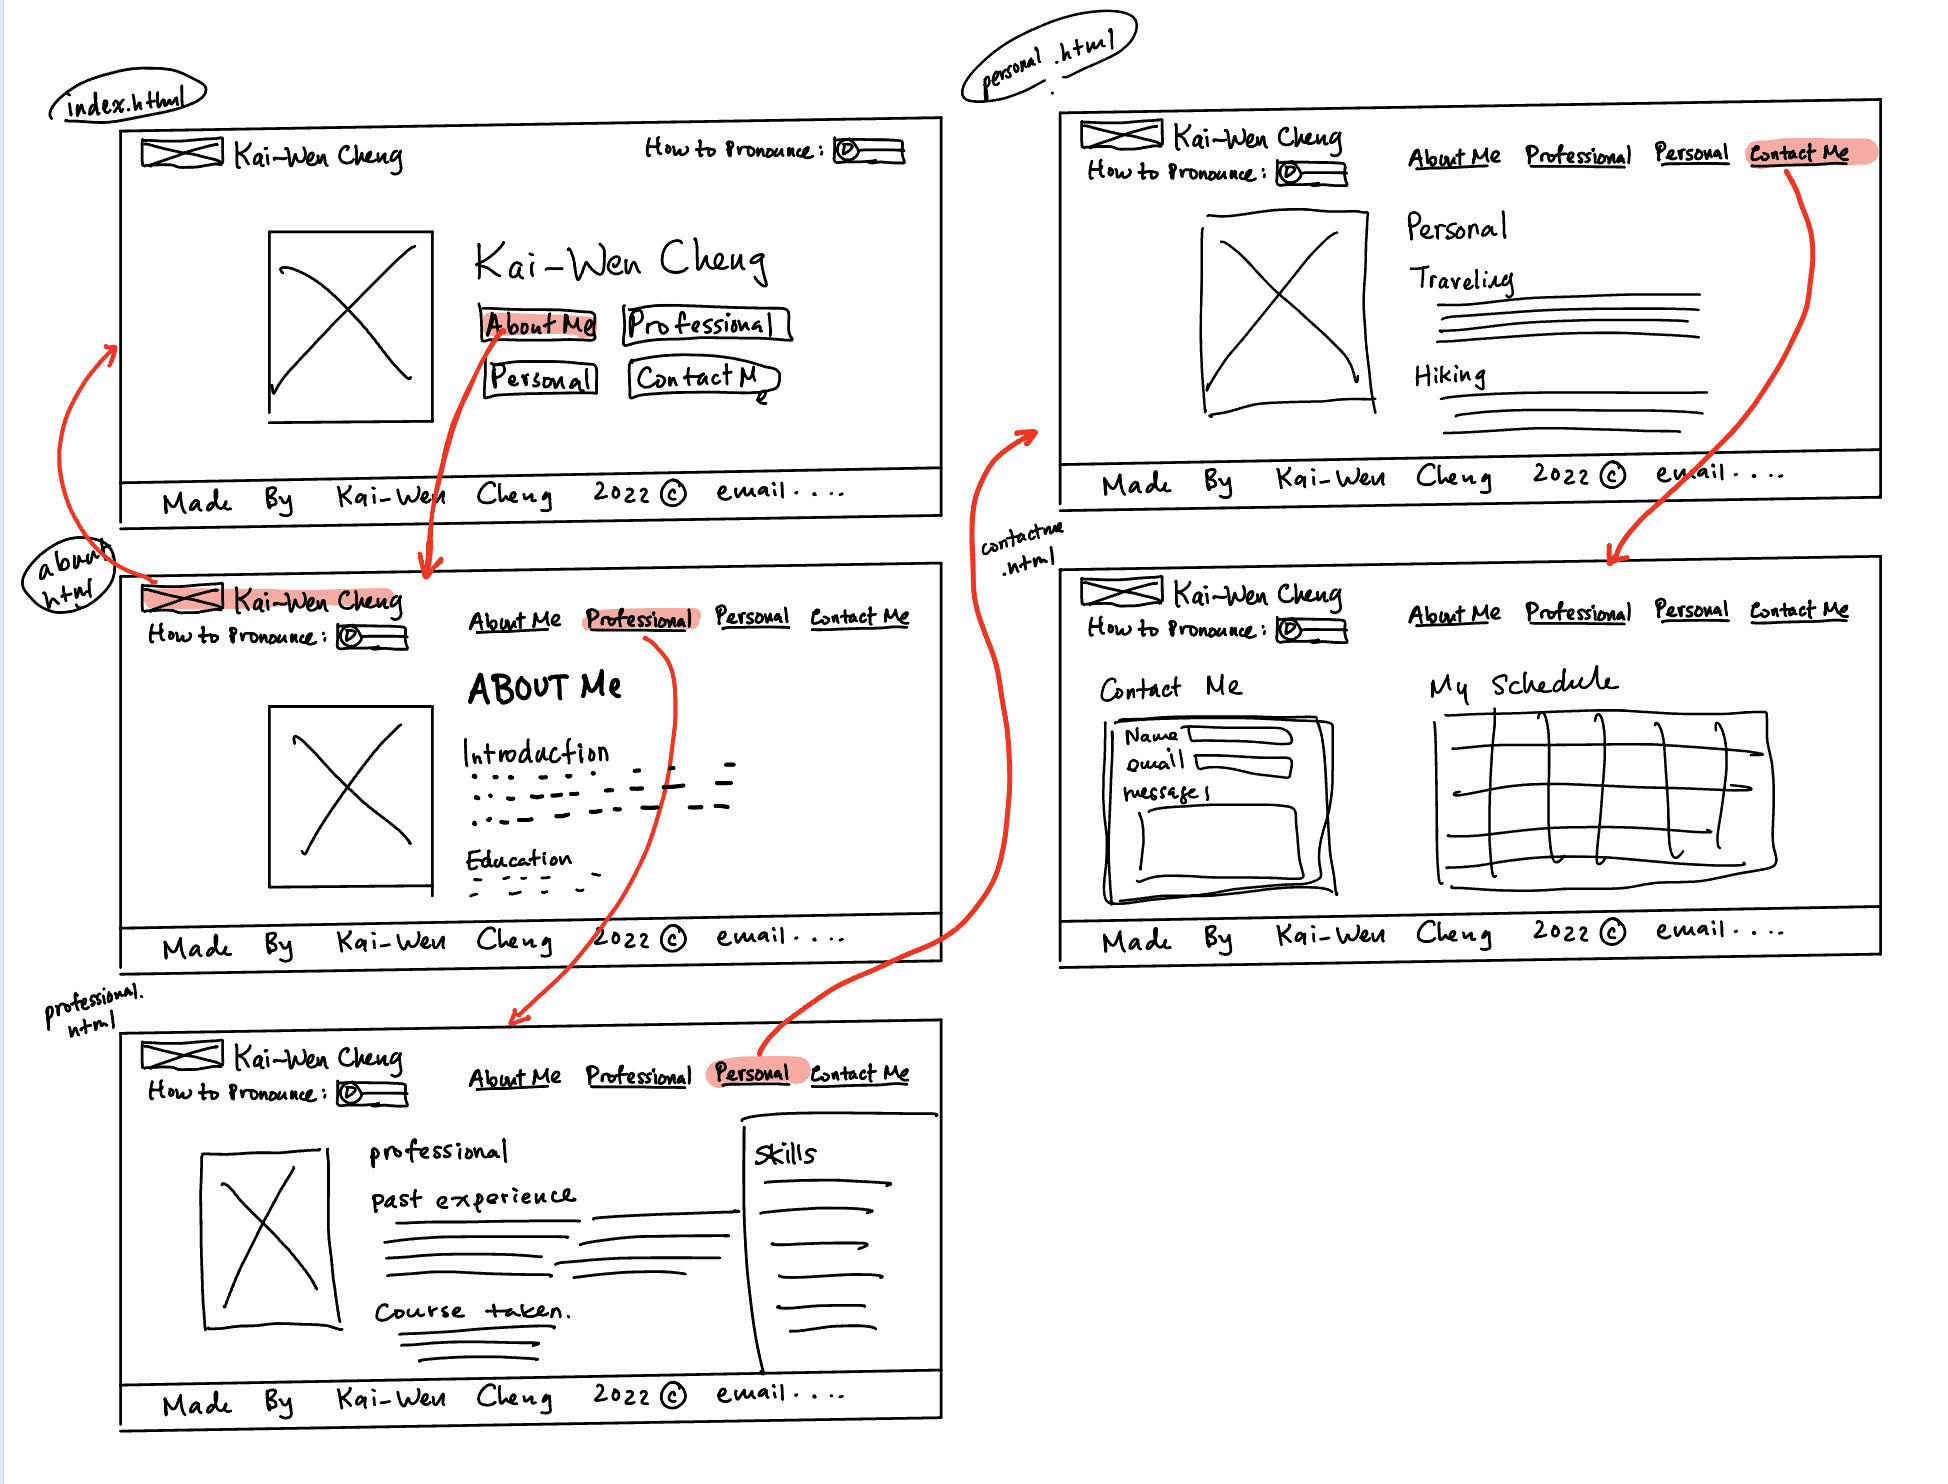 index.html
Kai-Wen Cheng
How to Pronounce:
Kai-Wen Cheng
About Me Professional
Personal Contact Me
Made By Kai-Wen Cheng 2022 © email....
about
html
Kai-Wen Cheng
How to Pronounce:
About Me Professional Personal Contact Me
ABOUT Me
Introduction
Education
Made By Kai-Wen Cheng 2022 © email....
professional.
html
Kai-Wen Cheng
How to Pronounce:
About Me Professional Personal Contact Me
professional
past experience
Course taken.
Skills
Made By Kai-Wen Cheng 2022 © email....
personal.html
Kai-Wen Cheng
How to Pronounce:
About Me Professional Personal Contact Me
Personal
Traveling
Hiking
Made By Kai-Wen Cheng 2022 © email....
contactme
.html
Kai-Wen Cheng
How to Pronounce:
About Me Professional Personal Contact Me
Contact Me
Name
email
messages
My Schedule
Made By Kai-Wen Cheng 2022 © email....